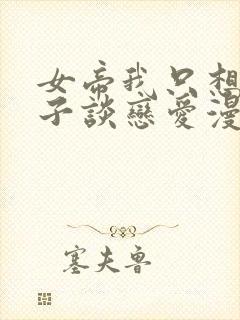 女帝我只想
子談戀愛漫
塞夫魯